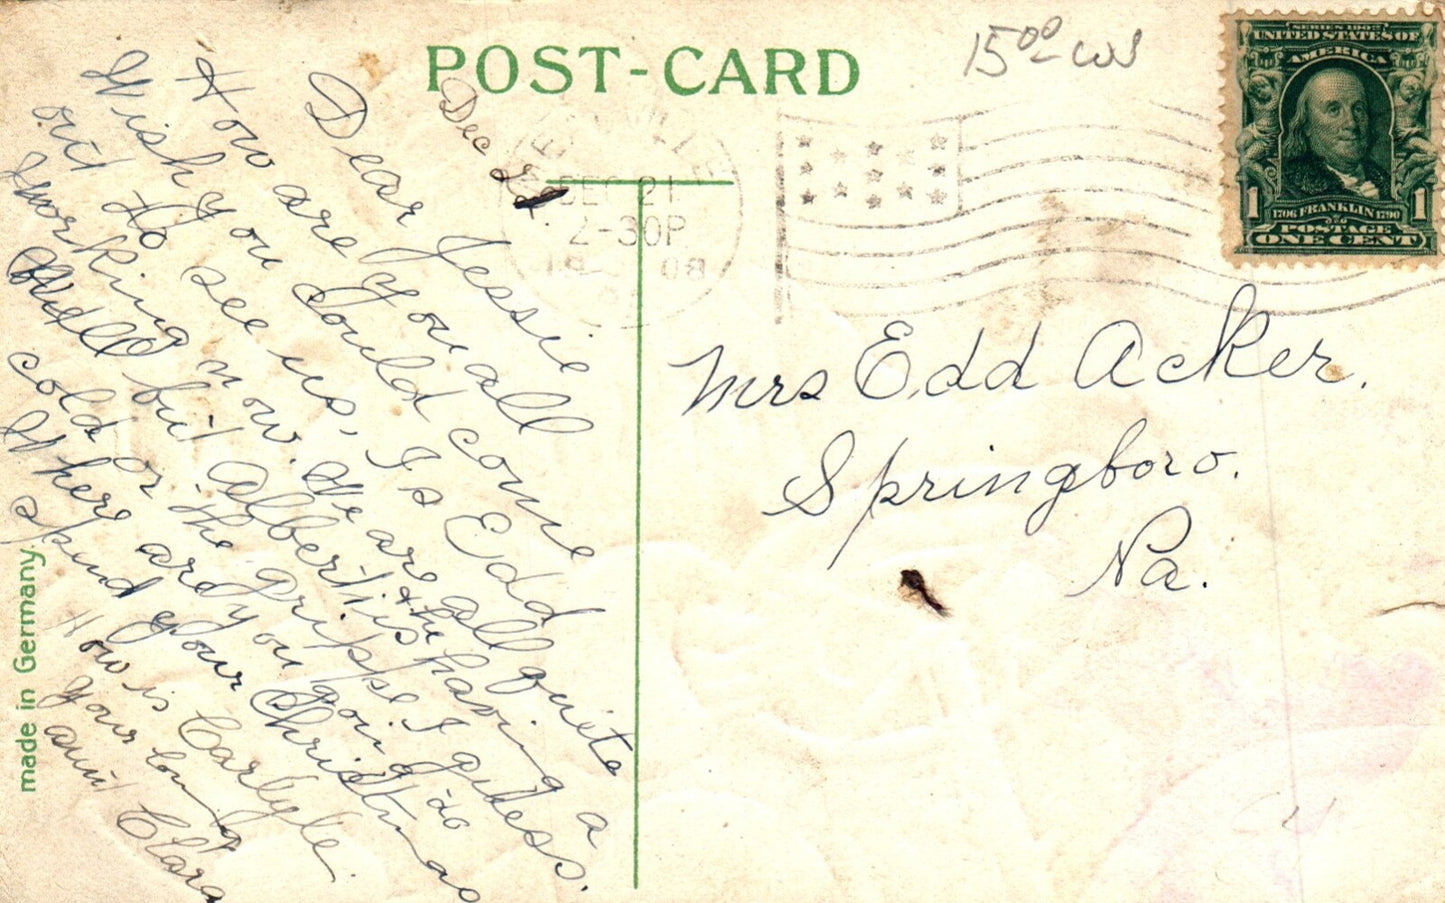 POST-CARD
15⁰⁰ WS
SERIES 1902
UNITED STATES OF
AMERICA
1 1
1706 FRANKLIN 1790
POSTAGE
ONE CENT
DEC 21
2-30P
19 08
Dec
Dear Jessie
How are you all
Wish you could come
out to see us, Is Edd
working now. We are all quite
Well but Albert is having a
& the
cold or the grippe I guess.
Where are you going to
spend your Christmas
How is Carlyle.
your loving
aunt Clara
Mrs Edd Acker.
Springboro.
Pa.
made in Germany.